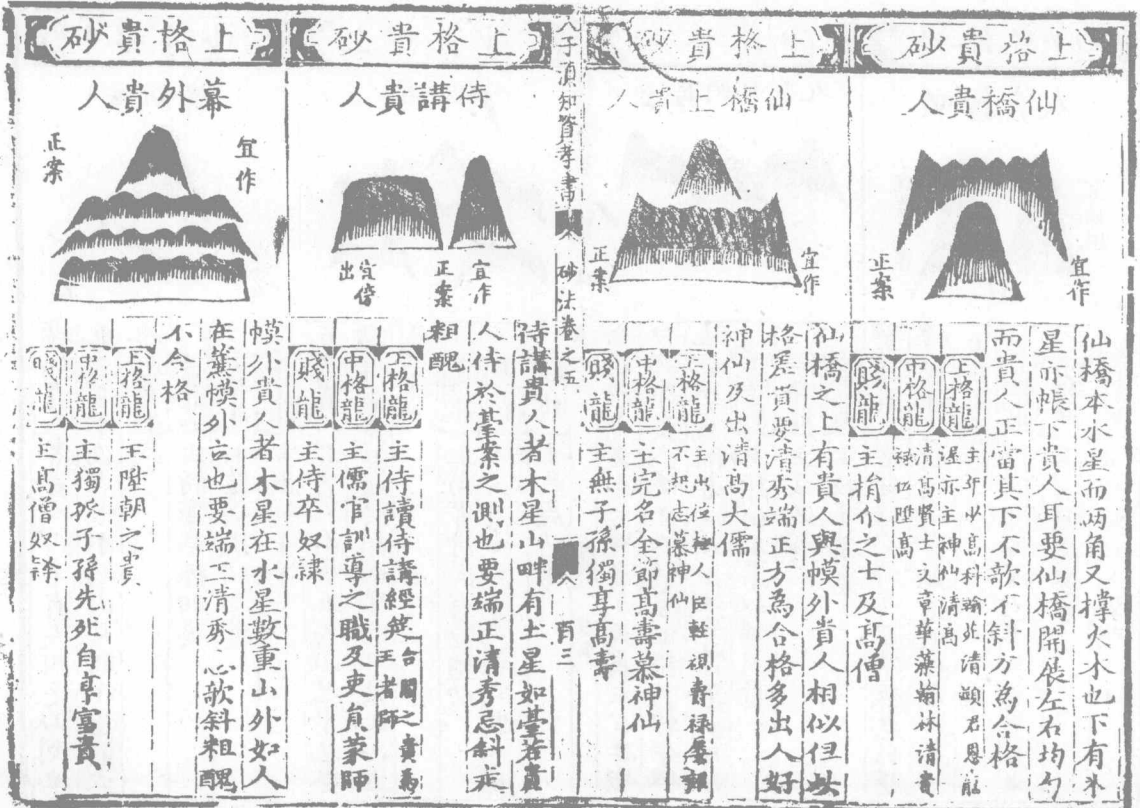 上格貴砂
仙橋貴人
宜作
正案
仙橋本水星而兩角又撑火木也下有木
星亦帳下貴人耳要仙橋開展左右均匀
而貴人正當其下不欹不斜方為合格
上格龍
主年少高科翰苑清顯君恩龍
遲亦主神仙清高
中格龍
清高賢士文章華藻翰林清貴
祿位陞高
賤龍
主措介之士及高僧
上格貴砂
仙橋上貴人
宜作
正案
仙橋之上有貴人與幙外貴人相似但此
格差貴要清秀端正方為合格多出人好
神仙及出清高大儒
上格龍
主出位極人臣輕視爵祿
不起志慕神仙
中格龍
主完名全節高壽慕神仙
賤龍
主無子孫獨享高壽
人子須知資孝書
砂法卷之五
百三
上格貴砂
侍講貴人
宜作
正案
宜傍
出
侍講貴人者木星山畔有土星如臺若貴
人侍於臺案之側也要端正清秀忌斜走
粗醜
上格龍
主侍讀侍講經筵台閣之貴為
王者師
中格龍
主儒官訓導之職及吏貟蒙師
賤龍
主侍卒奴隸
上格貴砂
幕外貴人
宜作
正案
幙外貴人者木星在水星數重山外如人
在簾幙外立也要端正清秀 欹斜粗醜
不合格
上格龍
主陞朝之貴
中格龍
主獨 子子孫先死自享富貴
賤龍
主高僧奴隸